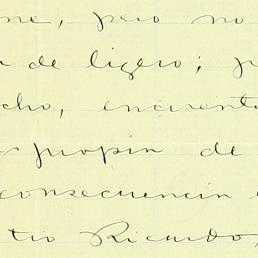 me, pero no
de ligero; p
cho, encuentr
propia de
consecuencia
tio Ricardo,